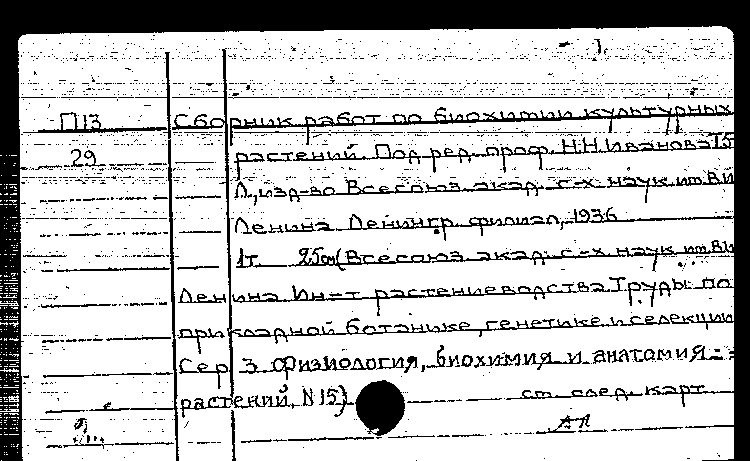 П13 Сборник работ по биохимии культурных
29 растений. Под ред. проф. Н.Н. Иванова 15
Л., изд-во Всесоюз. акад. с-х. наук им. В.И
Ленина Ленингр. филиал, 1936
1т. 25см (Всесоюз. акад. с-х. наук им. В.И
Ленина Ин-т растениеводства Труды по
прикладной ботанике, генетике и селекции
Сер 3. Физиология, биохимия и анатомия
растений, N 15)
ст. след. карт.